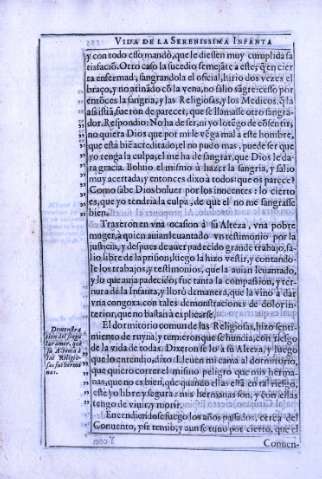 VIDA DE LA SERENISSIMA INFANTA
y con todo esso mandò, que le diessen muy cumplida sa
tisfaciõ. Otro caso la sucedio semejãte a este, q̃ en cier
ta enfermedad, sangrandola el oficial, hirio dos vezes el
braço, y no atinãdo cõ la vena, no salio sãgre: cesso por
entõces la sangria, y las Religiosas, y los Medicos, q̃ la
assistiã, fuerõ de parecer, que se llamasse otro sangra-
dor. Respondio: No ha de ser assi, yo lo têgo de cõsentir,
no quiera Dios que por mi le vêga mal a este hombre,
que està biê acreditado, el no pudo mas, puede ser que
yo tenga la culpa, el me ha de sangrar, que Dios le da-
ra gracia. Boluio el mismo à hazer la sangria, y salio
muy acertada, y entonces dixo a todos: que os parece?
Como sabe Dios boluer por los inocentes: lo cierto
es, que yo tendria la culpa, de que el no me sangrasse
bien.
Traxeron en vna ocasion à su Alteza, vna pobre
muger, à quien auian leuantado vn testimonio por la
justicia, y despues de auer padecido grande trabajo, sa-
lio libre de la prision, luego la hizo vestir, y contando-
le los trabajos, y testimonios, que la auian leuantado,
y lo que auia padecido, fue tanta la compassion, y ter-
nura de la Infanta, y llorò de manera, que la vino à dar
vna congoxa con tales demonstraciones de dolor in-
terior, que no bastarà a explicarse.
Demostra
cion del singu
lar amor, que
su Alteza à
las Religio-
sas sus herma
nas.
El dormitorio comun de las Religiosas, hizo senti-
miento de ruyna, y temieron que se hundia, con riesgo
de la vida de todas. Dixeronselo a su Alteza, y luego
que lo entendio, dixo: Lleuenme cama al dormitorio,
que quiero correr el mismo peligro que mis herma-
nas, que no es bien, que quando ellas estã en tal riesgo,
estè yo libre y segura: mis hermanas son, y con ellas
tengo de viuir, y morir.
Encendiendose fuego los años passados, cerca del
Conuento, y se temio, y aun se tuuo por cierto, que el
Conuen-